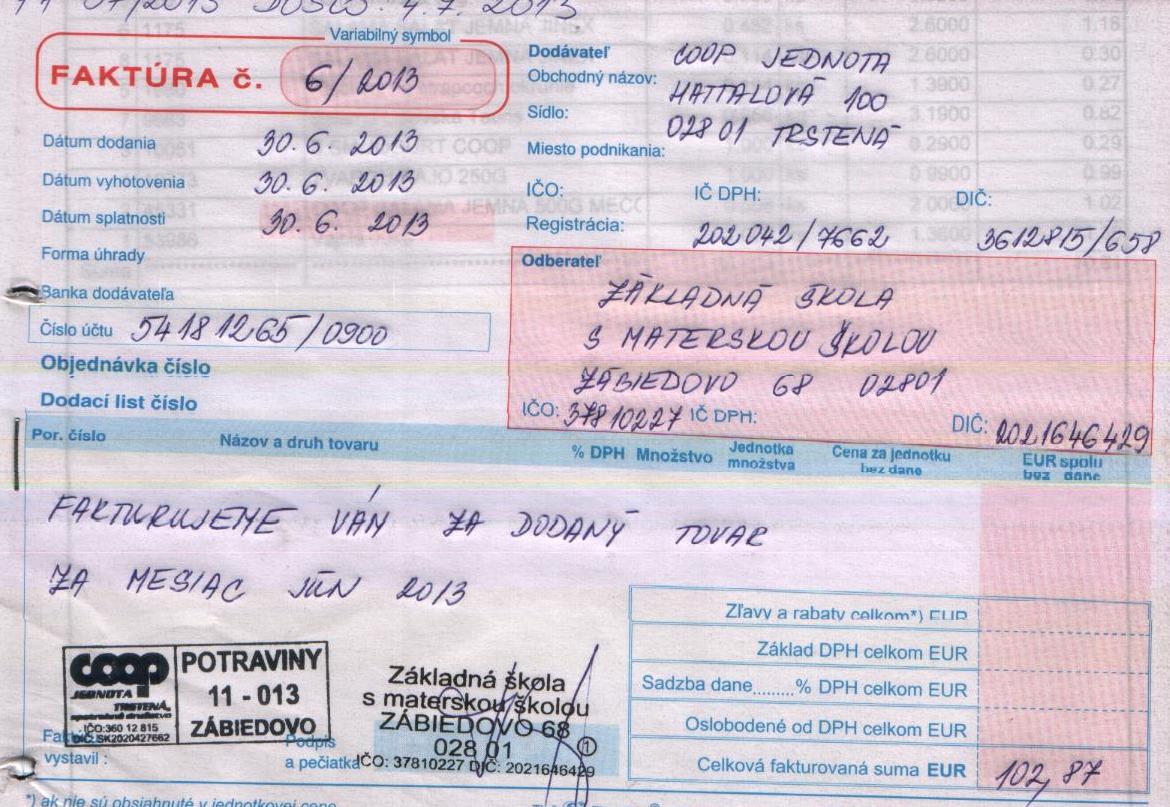 11 07/2013 DOŠLO: 4.7. 2013
Variabilný symbol
FAKTÚRA č. 6/2013
Dátum dodania 30.6. 2013
Dátum vyhotovenia 30.6. 2013
Dátum splatnosti 30.6. 2013
Forma úhrady
Banka dodávateľa
Číslo účtu 54181265/0900
Objednávka číslo
Dodací list číslo
Dodávateľ
Obchodný názov: COOP JEDNOTA
Sídlo: HATTALOVÁ 100
02801 TRSTENÁ
Miesto podnikania:
IČO: IČ DPH: DIČ:
Registrácia: 202042/7662 3612815/658
Odberateľ
ZÁKLADNÁ ŠKOLA
S MATERSKOU ŠKOLOU
ZÁBIEDOVO 68 02801
IČO: 37810227 IČ DPH: DIČ: 2021646429
Por. číslo Názov a druh tovaru % DPH Množstvo Jednotka množstva Cena za jednotku bez dane EUR spolu bez dane
FAKTURUJEME VÁN ZA DODANÝ TOVAR
ZA MESIAC JÚN 2013
Zľavy a rabaty celkom*) EUR
Základ DPH celkom EUR
Sadzba dane.......% DPH celkom EUR
Oslobodené od DPH celkom EUR
Celková fakturovaná suma EUR 102,87
coop
JEDNOTA
TRSTENÁ,
spotrebné družstvo
IČO:360 12 815
DIČ:SK2020427662
POTRAVINY
11 - 013
ZÁBIEDOVO
vystavil :
Podpis
a pečiatka
Základná škola
s materskou školou
ZÁBIEDOVO 68
028 01 1
IČO: 37810227 DIČ: 2021646429
*) ak nie sú obsiahnuté v jednotkovej cene